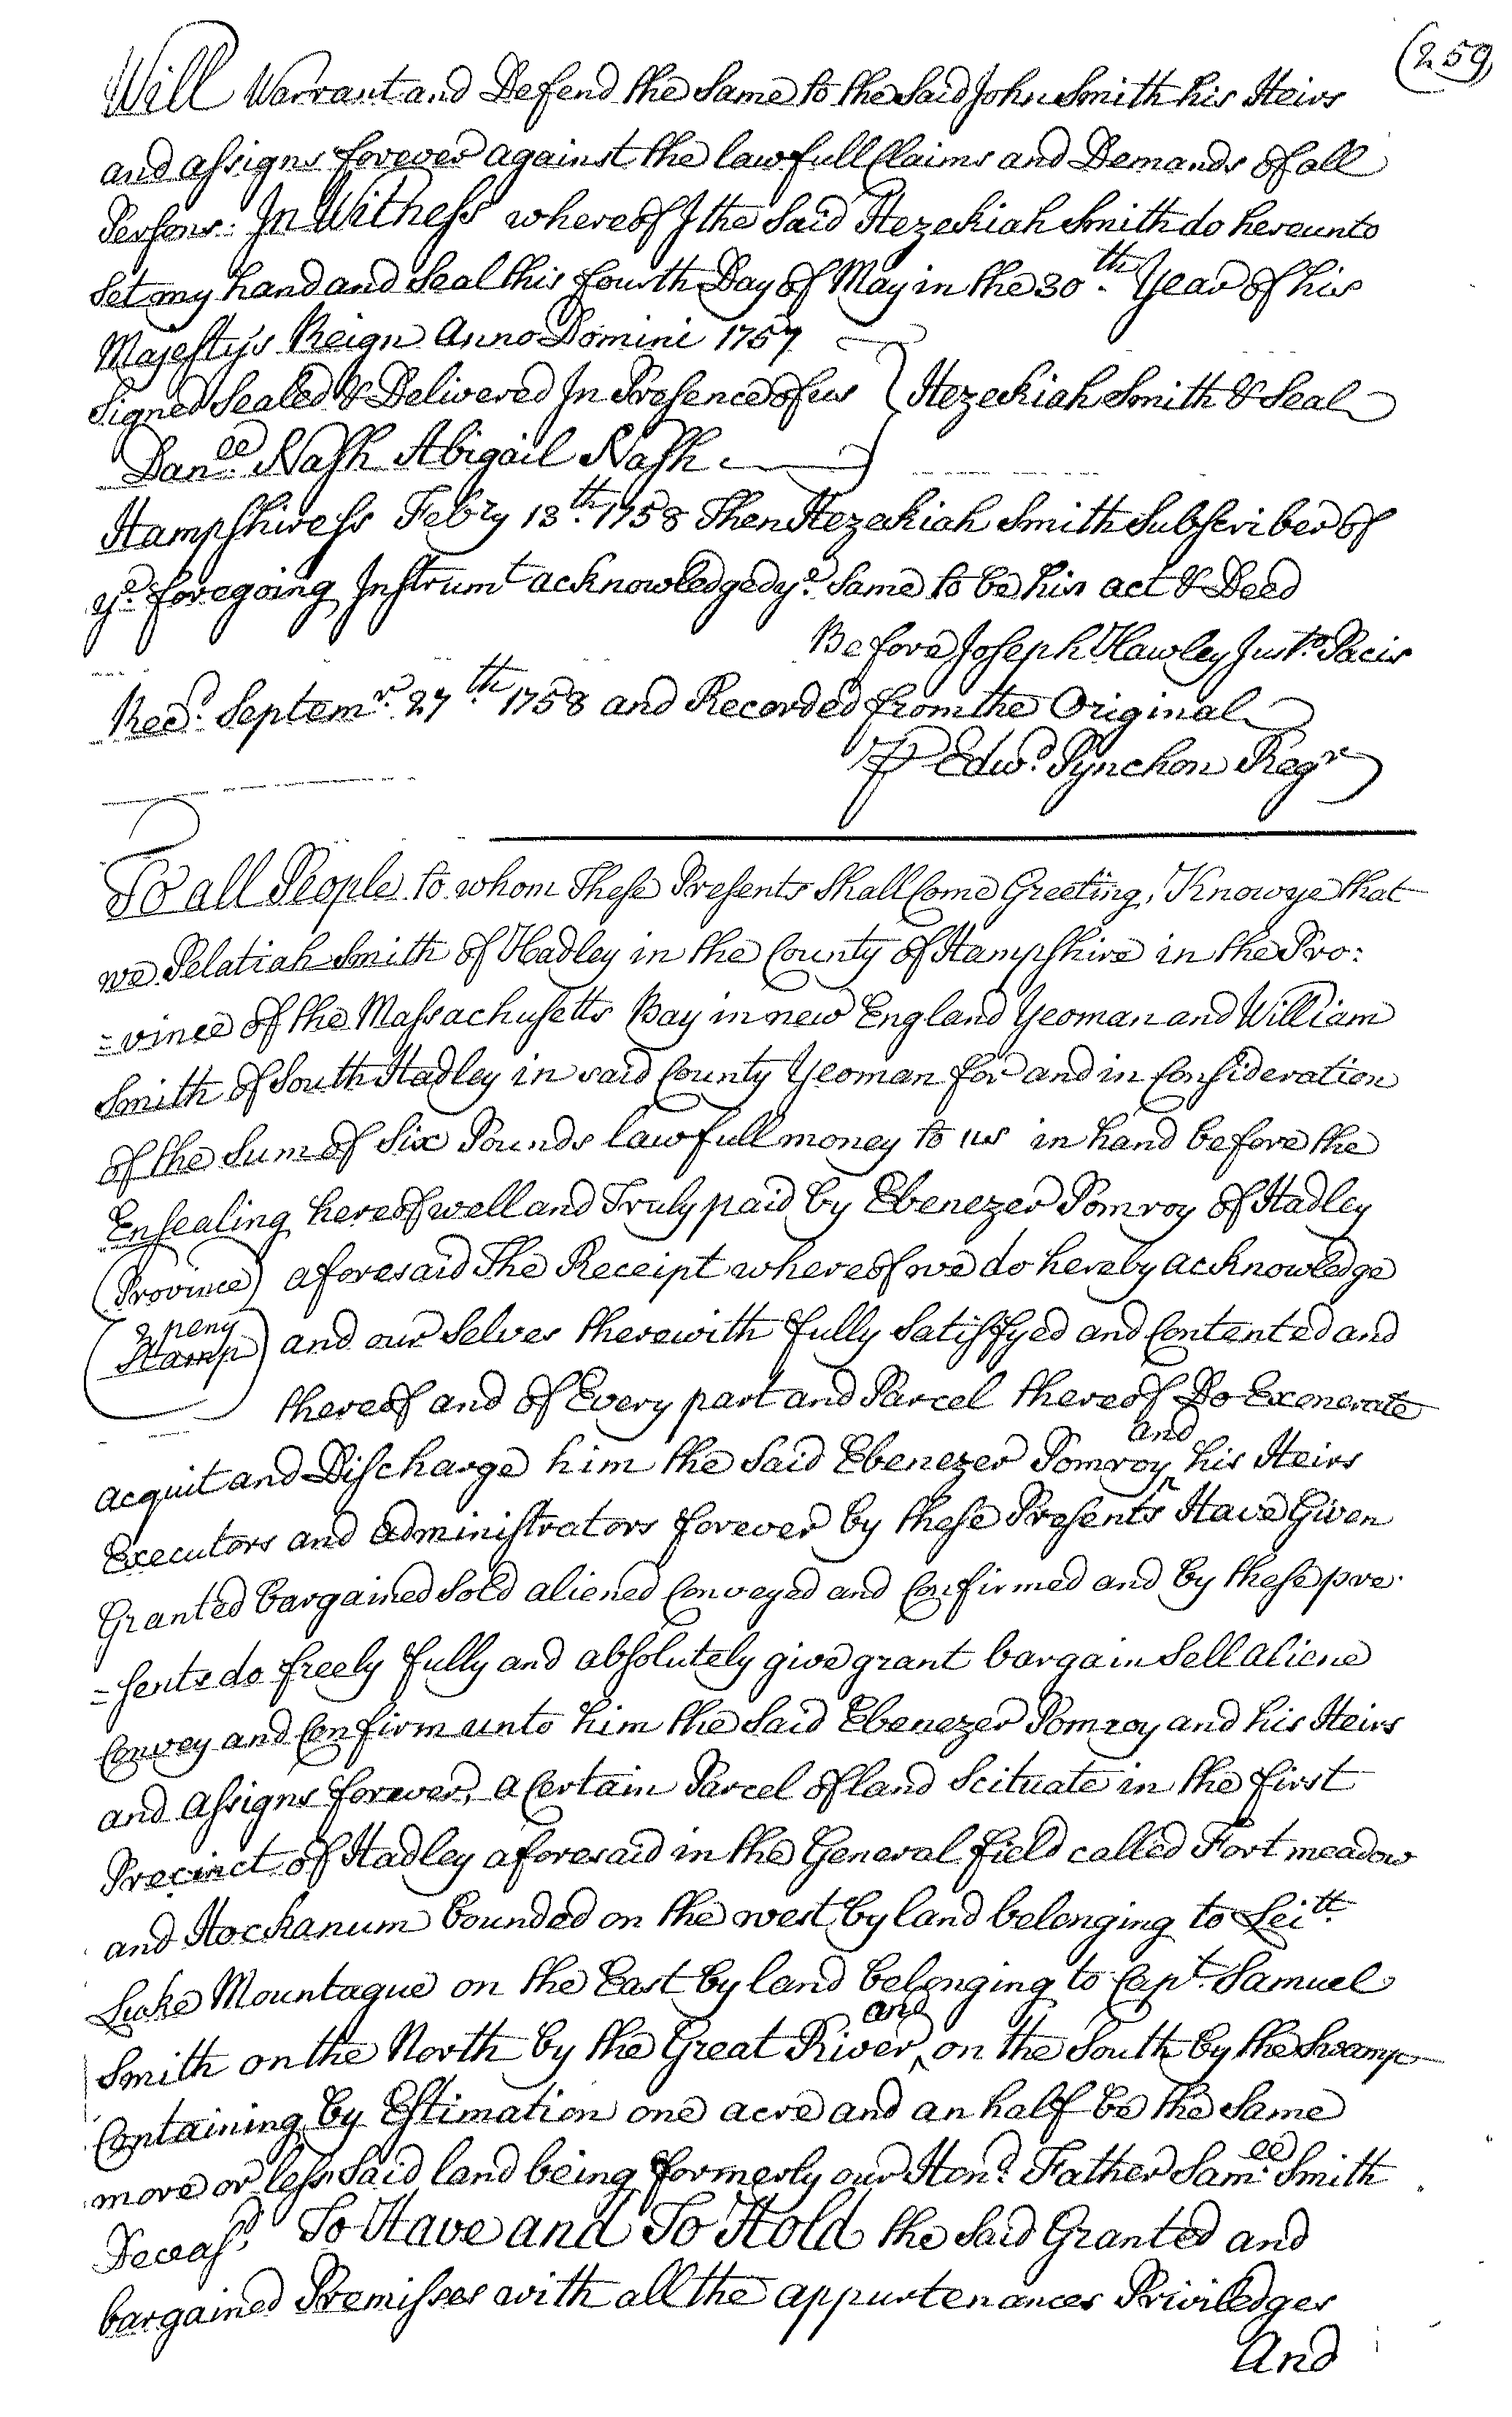 (259)
Will Warrant and Defend the Same to the Said John Smith his Heirs
and assigns forever against the lawfull Claims and Demands of all
Persons. In Witness whereof I the Said Hezekiah Smith do hereunto
Set my hand and Seal this fourth Day of May in the 30th. Year of his
Majestys Reign Anno Domini 1757
Signed Sealed & Delivered In Presence of us } Hezekiah Smith & Seal
Danll. Nash Abigail Nash
Hampshire ss Febry 13th. 1758 Then Hezekiah Smith Subscriber of
ye. foregoing Instrumt acknowledged ye. Same to be his act & Deed
Before Joseph Hawley Justo. Pacis
Recd. Septemr. 27th. 1758 and Recorded from the Original
P Edwd. Pynchon Regr
To all People to whom These Presents Shall Come Greeting, Know ye that
we Pelatiah Smith of Hadley in the County of Hampshire in the Pro:
=vince of the Massachusetts Bay in new England Yeoman and William
Smith of South Hadley in said County Yeoman for and in Consideration
of the Sum of Six Pounds lawfull money to us in hand before the
Ensealing hereof well and Truly paid by Ebenezer Pomroy of Hadley
(Province) aforesaid The Receipt whereof we do hereby acknowledge
(2 peny Stamp) and our Selves therewith fully Satisfyed and Contented and
thereof and of Every part and Parcel thereof Do Exonerate
acquit and Discharge him the Said Ebenezer Pomroy and his Heirs
Executors and administrators forever by these Presents Have Given
Granted bargained Sold aliened Conveyed and Confirmed and by these pre
=sents do freely fully and absolutely give grant bargain Sell aliene
Convey and Confirm unto him the Said Ebenezer Pomroy and his Heirs
and assigns forever, a Certain Parcel of land Scituate in the first
Precinct of Hadley aforesaid in the General field called Fort meadow
and Hockanum bounded on the west by land belonging to Leitt.
Luke Mountague on the East by land belonging to Capt. Samuel
Smith on the North by the Great River and on the South by the Swamp
Containing by Estimation one acre and an half be the Same
more or less Said land being formerly our Hond. Father Samll. Smith
Deceasd. To Have and To Hold the Said Granted and
bargained Premisses with all the appurtenances Priviledges
And